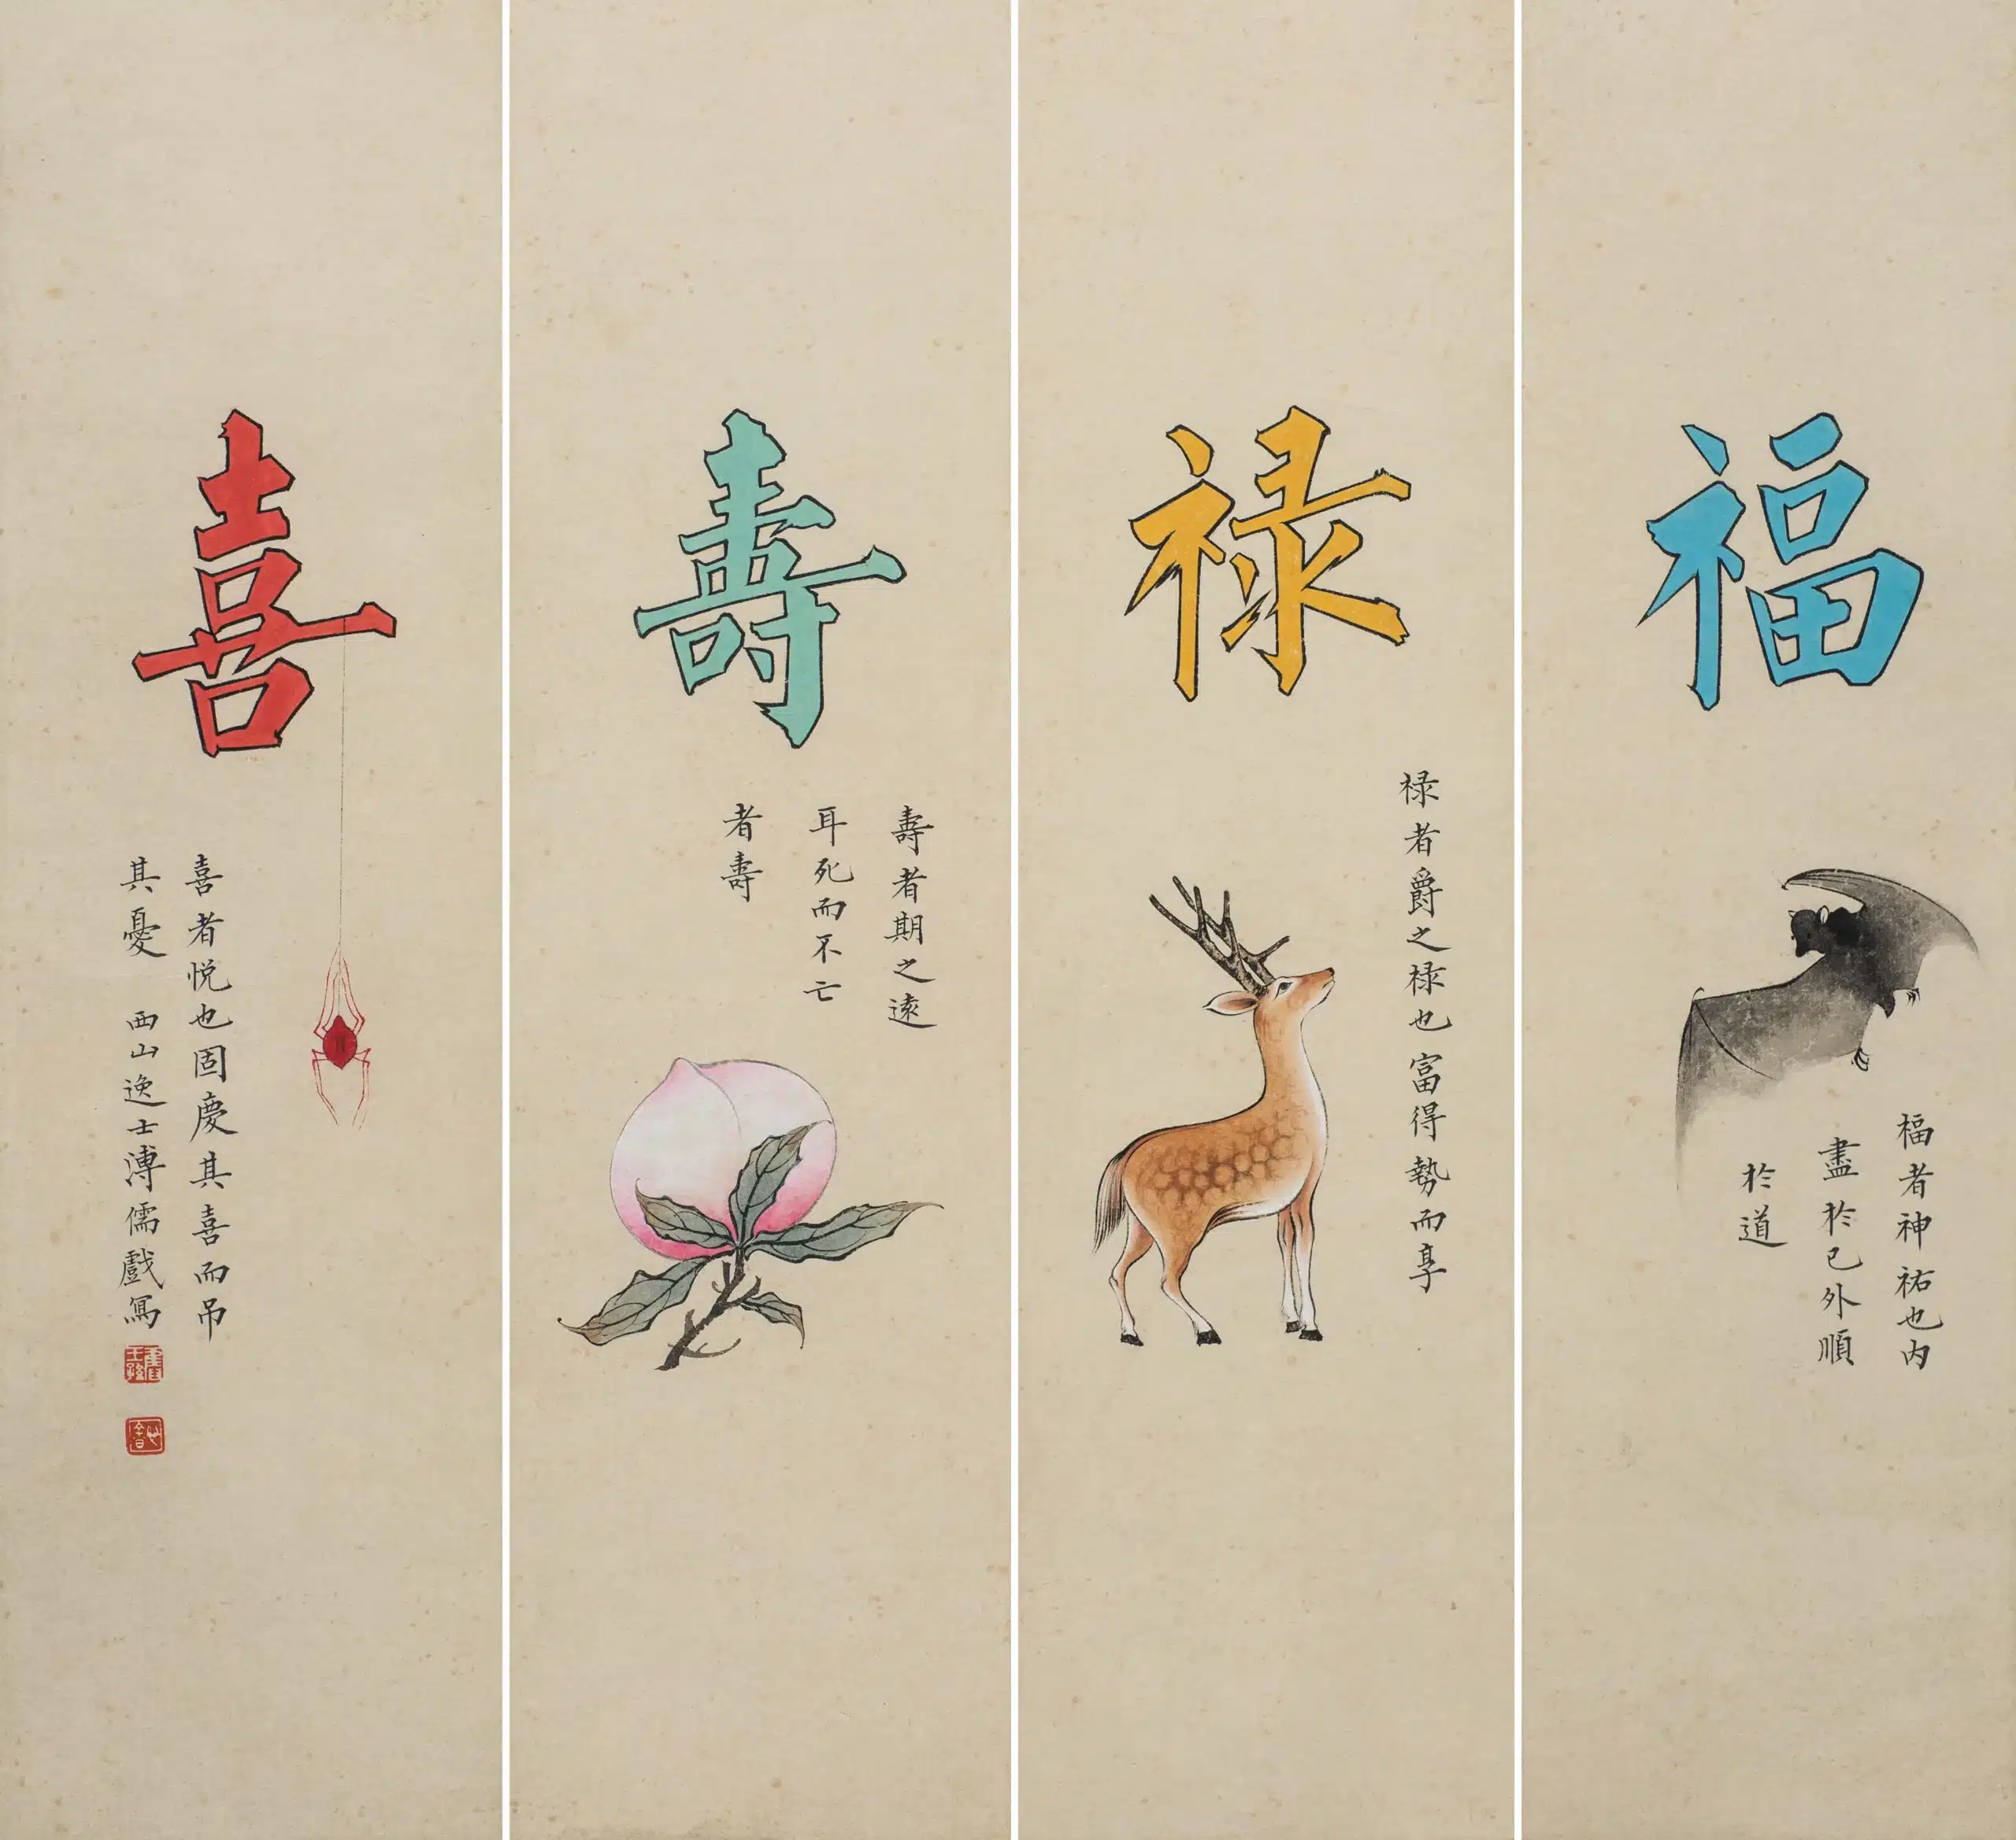 福
福者神祐也内
盡於己外順
於道
禄
禄者爵之禄也富得勢而享
壽
壽者期之遠
耳死而不亡
者壽
喜
喜者悦也固慶其喜而吊
其憂 西山逸士溥儒戲寫
舊王孫